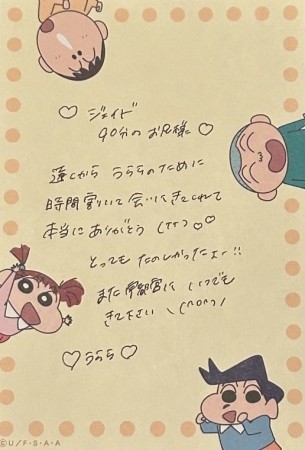 ♡ ジェイド
90分のお兄様 ♡
遠くから うららのために
時間割いて 会いにきてくれて
本当にありがとう (TT) ♡♡
とっても たのしかったよー!!
また 御殿に いつでも
きて下さい \(^o^)/
♡ うらら ♡
©U/F・S・A・A